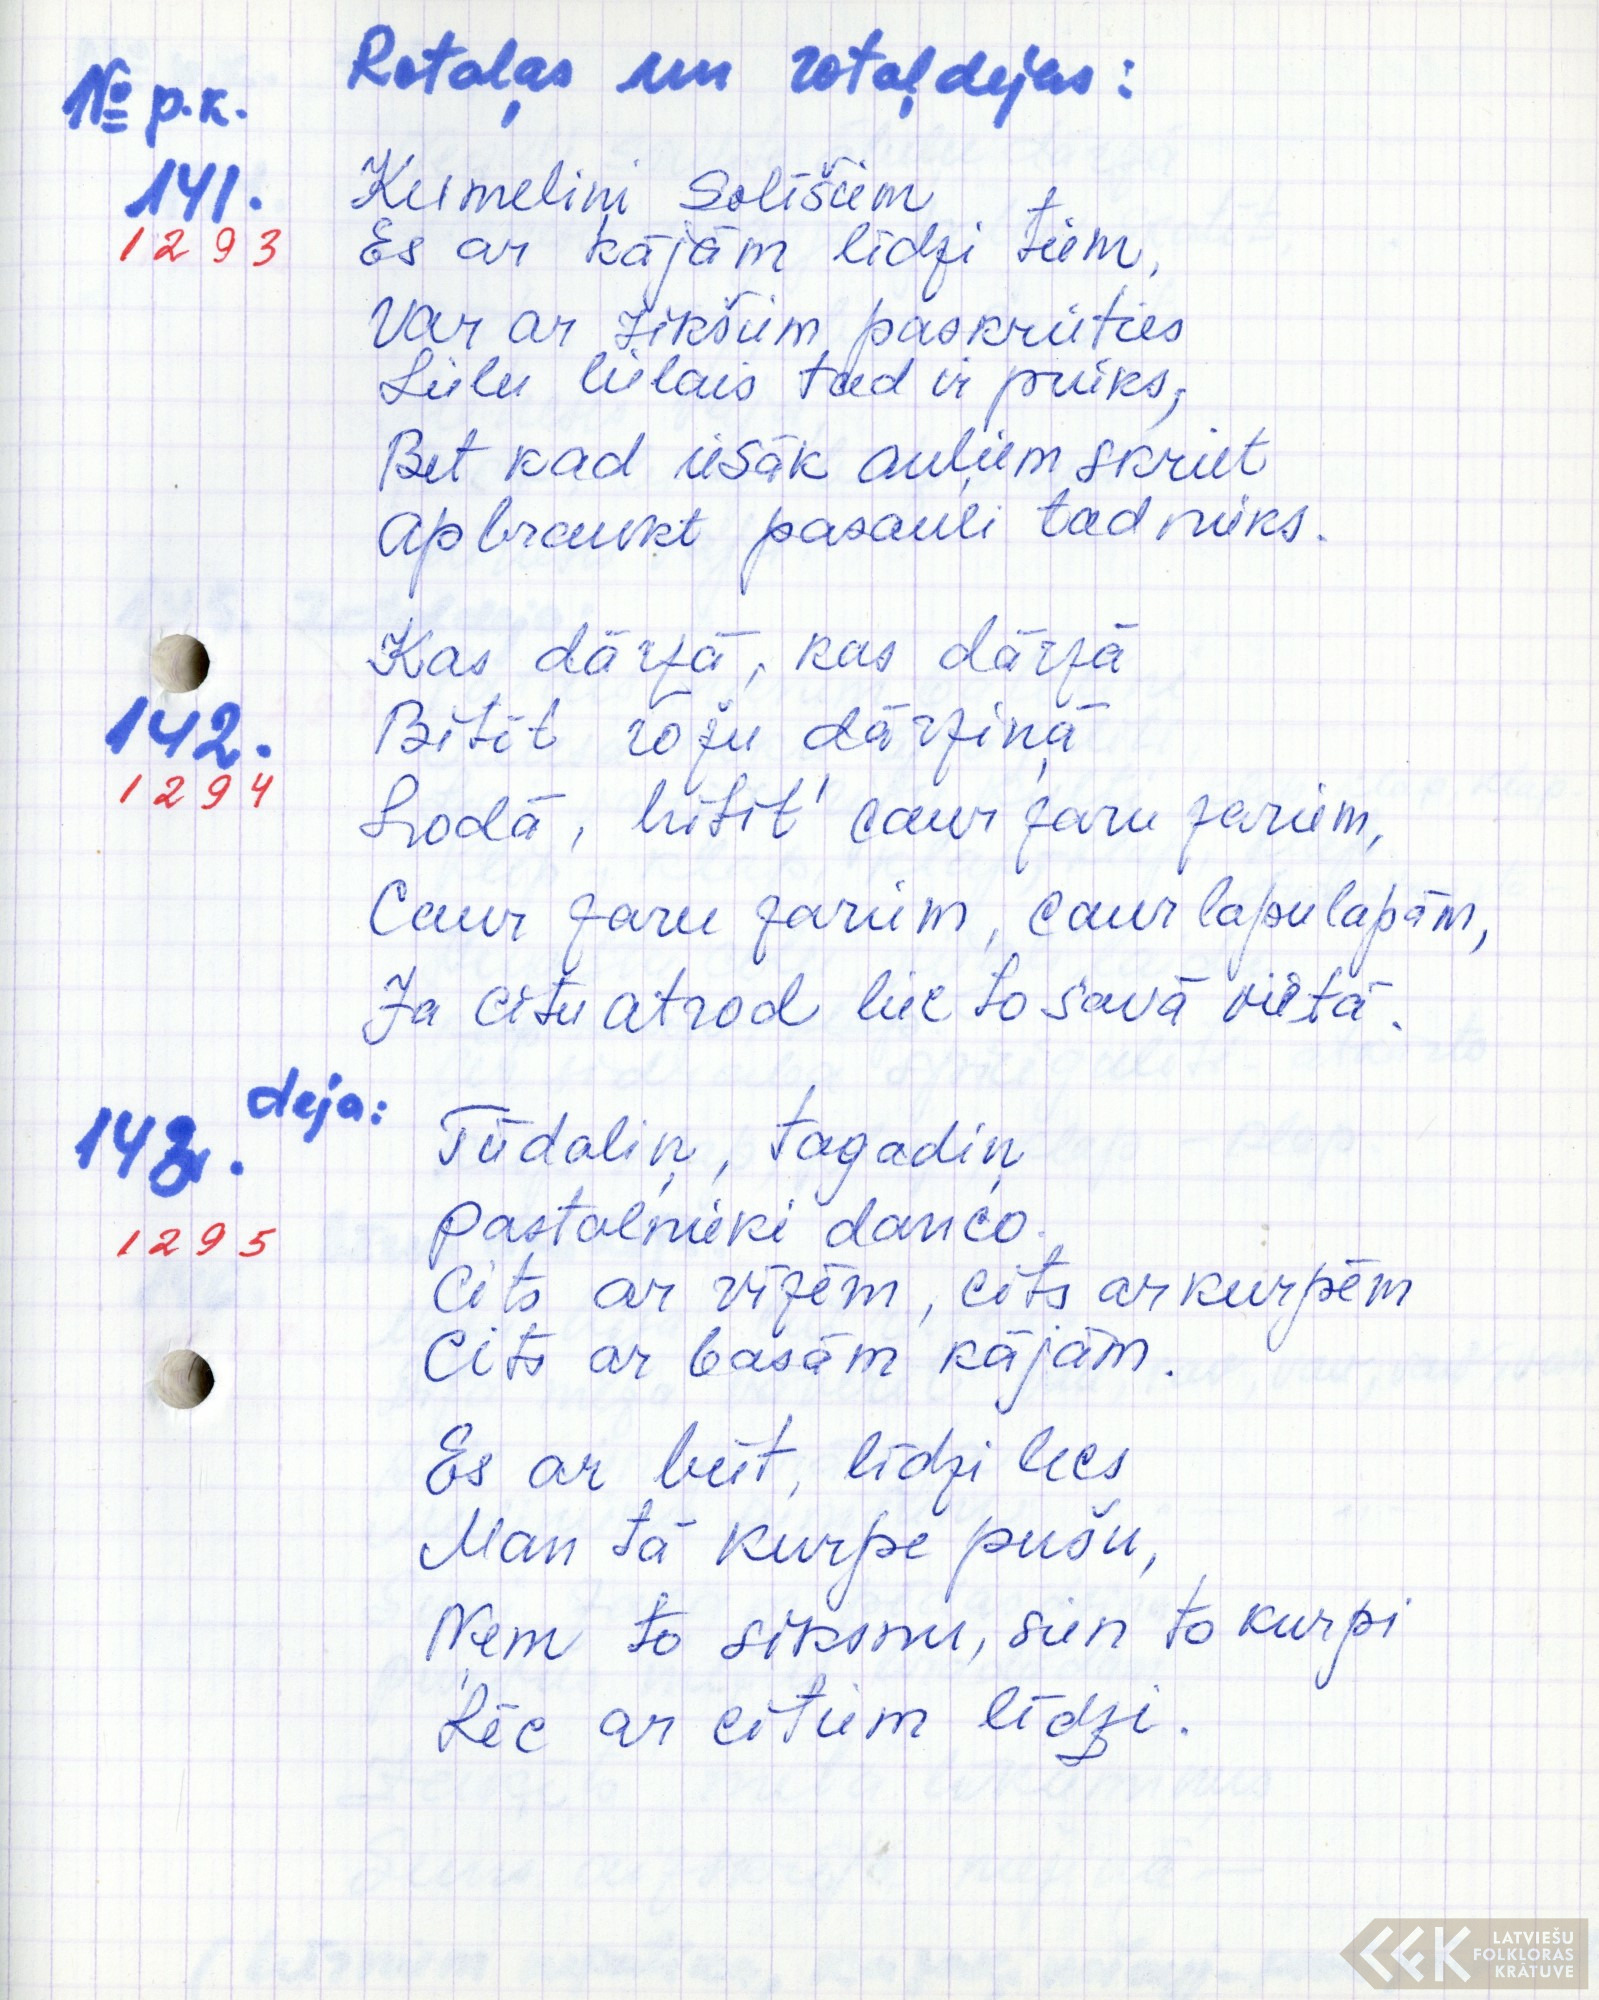 Rotaļas un rotaļdejas:
№ p.k.
141. Kumeliņi soļīšiem
1293 Es ar kājām līdzi tiem,
Var ar rikšiem paskrieties
Lielu lielais tad ir prieks,
Bet kad iesāk auļiem skriet
Apbraukt pasauli tad nieks.
Kas dārzā, kas dārzā
142. Bitīt rožu dārziņā
1294 Lodā, bitīt' caur zaru zariem,
Caur zaru zariem, caur lapu lapām,
Ja citu atrod liec to savā vietā.
143. deja: Tūdaliņ, tagadiņ
1295 Pastalnieki dancо.
Cits ar vīzēm, cits ar kurpēm
Cits ar basām kājām.
Es ar būt, līdzi lecs
Man tā kurpe pušu,
Ņem to siksnu, sien to kurpi
Lēc ar citiem līdzi.
LATVIEŠU
FOLKLORAS
KRĀTUVE